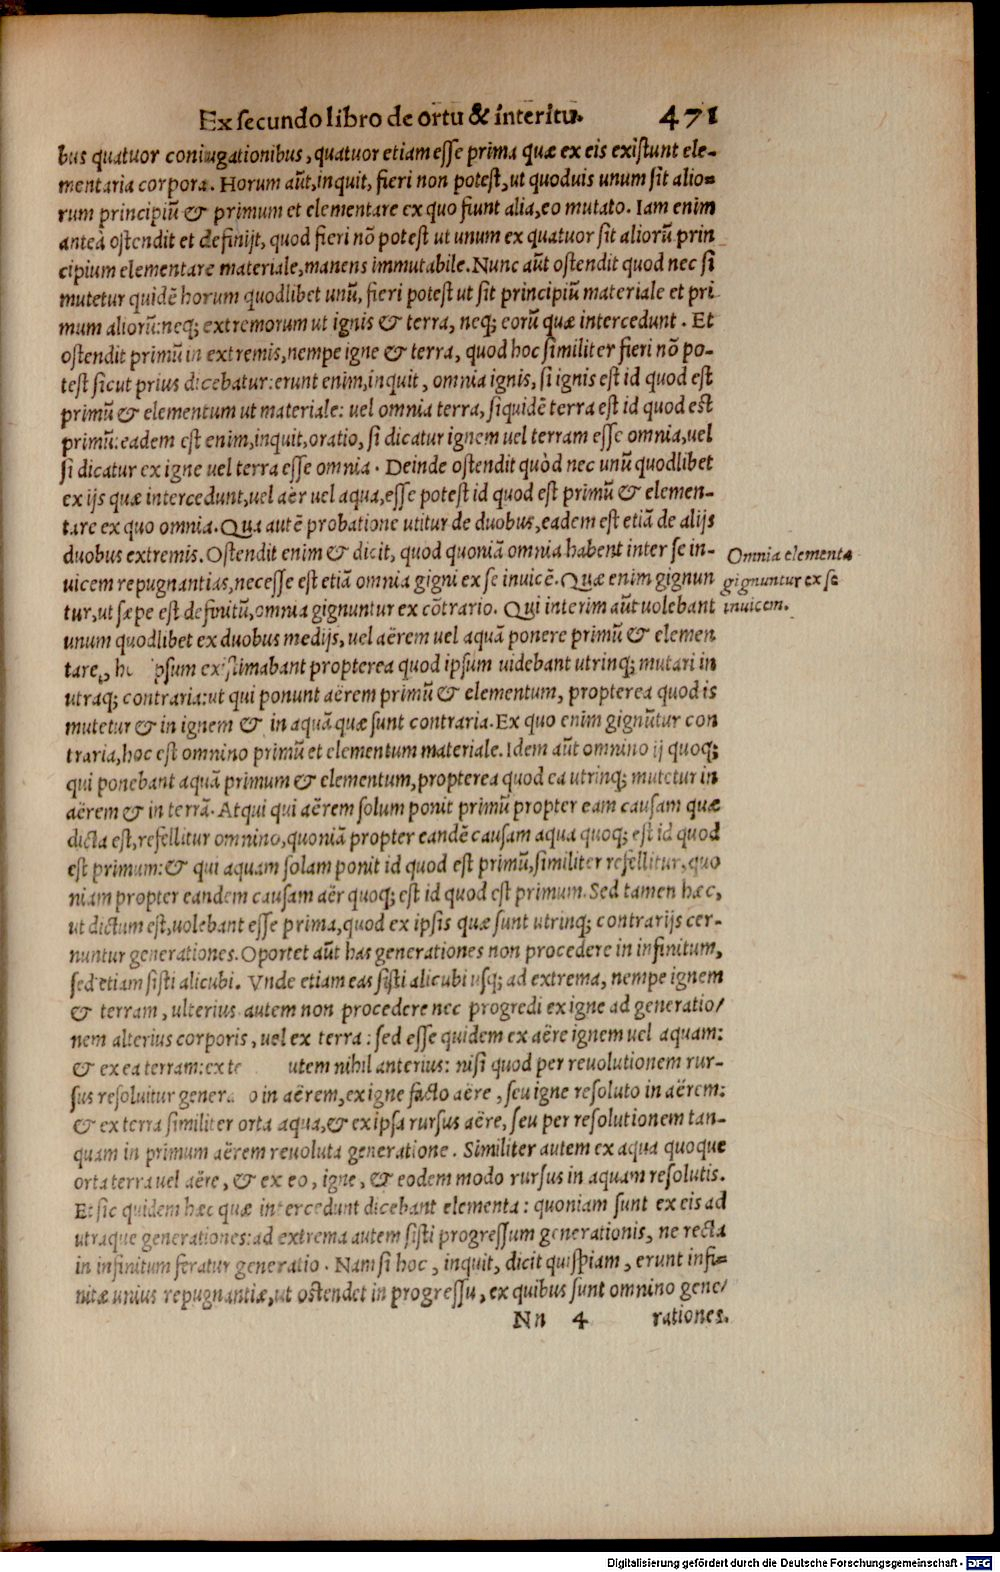 Ex secundo libro de ortu & interitu. 471
bus quatuor coniugationibus, quatuor etiam esse prima quæ ex eis existunt ele-
mentaria corpora. Horum aũt, inquit, fieri non potest, ut quoduis unum sit alio=
rum principiũ & primum et elementare ex quo fiunt alia, eo mutato. Iam enim
anteà ostendit et definijt, quod fieri nõ potest ut unum ex quatuor sit aliorũ prin
cipium elementare materiale, manens immutabile. Nunc aũt ostendit quod nec si
mutetur quidẽ horum quodlibet unũ, fieri potest ut sit principiũ materiale et pri
mum aliorũ: neq; extremorum ut ignis & terra, neq; eorũ quæ intercedunt. Et
ostendit primũ in extremis, nempe igne & terra, quod hoc similiter fieri nõ po-
test sicut prius dicebatur: erunt enim, inquit, omnia ignis, si ignis est id quod est
primũ & elementum ut materiale: uel omnia terra, siquidẽ terra est id quod est
primũ: eadem est enim, inquit, oratio, si dicatur ignem uel terram esse omnia, uel
si dicatur ex igne uel terra esse omnia. Deinde ostendit quòd nec unũ quodlibet
ex ijs quæ intercedunt, uel aër uel aqua, esse potest id quod est primũ & elemen-
tare ex quo omnia. Qua autẽ probatione utitur de duobus, eadem est etiã de alijs
duobus extremis. Ostendit enim & dicit, quod quoniã omnia habent inter se in-
uicem repugnantias, necesse est etiã omnia gigni ex se inuicẽ. Quæ enim gignun
tur, ut sæpe est definitũ, omnia gignuntur ex cõtrario. Qui interim aũt uolebant
unum quodlibet ex duobus medijs, uel aërem uel aquã ponere primũ & elemen
tare, psum existimabant propterea quod ipsum uidebant utrinq; mutari in
utraq; contraria: ut qui ponunt aërem primũ & elementum, propterea quod is
mutetur & in ignem & in aquã quæ sunt contraria. Ex quo enim gignũtur con
traria, hoc est omnino primũ et elementum materiale. Idem aũt omnino ij quoq;
qui ponebant aquã primum & elementum, propterea quod ea utrinq; mutetur in
aërem & in terrã. Atqui qui aërem solum ponit primũ propter eam causam quæ
dicta est, refellitur omnino, quoniã propter eandẽ causam aqua quoq; est id quod
est primum: & qui aquam solam ponit id quod est primũ, similiter refellitur, quo
niam propter eandem causam aër quoq; est id quod est primum. Sed tamen hæc,
ut dictum est, uolebant esse prima, quod ex ipsis quæ sunt utrinq; contrarijs cer-
nuntur generationes. Oportet aũt has generationes non procedere in infinitum,
sed etiam sisti alicubi. Vnde etiam eas sisti alicubi usq; ad extrema, nempe ignem
& terram, ulterius autem non procedere nec progredi ex igne ad generatio/
nem alterius corporis, uel ex terra: sed esse quidem ex aëre ignem uel aquam:
& ex ea terram: ex te utem nihil anterius: nisi quod per reuolutionem rur-
sus resoluitur genera o in aërem, ex igne facto aëre, seu igne resoluto in aërem:
& ex terra similiter orta aqua, & ex ipsa rursus aëre, seu per resolutionem tan-
quam in primum aërem reuoluta generatione. Similiter autem ex aqua quoque
orta terra uel aëre, & ex eo, igne, & eodem modo rursus in aquam resolutis.
Et sic quidem hæc quæ intercedunt dicebant elementa: quoniam sunt ex eis ad
utraque generationes: ad extrema autem sisti progressum generationis, ne recta
in infinitum feratur generatio. Nam si hoc, inquit, dicit quispiam, erunt infi=
nitæ unius repugnantiæ, ut ostendet in progressu, ex quibus sunt omnino gene/
Nn 4 rationes.
Omnia elementa
gignuntur ex se
inuicem.
Digitalisierung gefördert durch die Deutsche Forschungsgemeinschaft - DFG